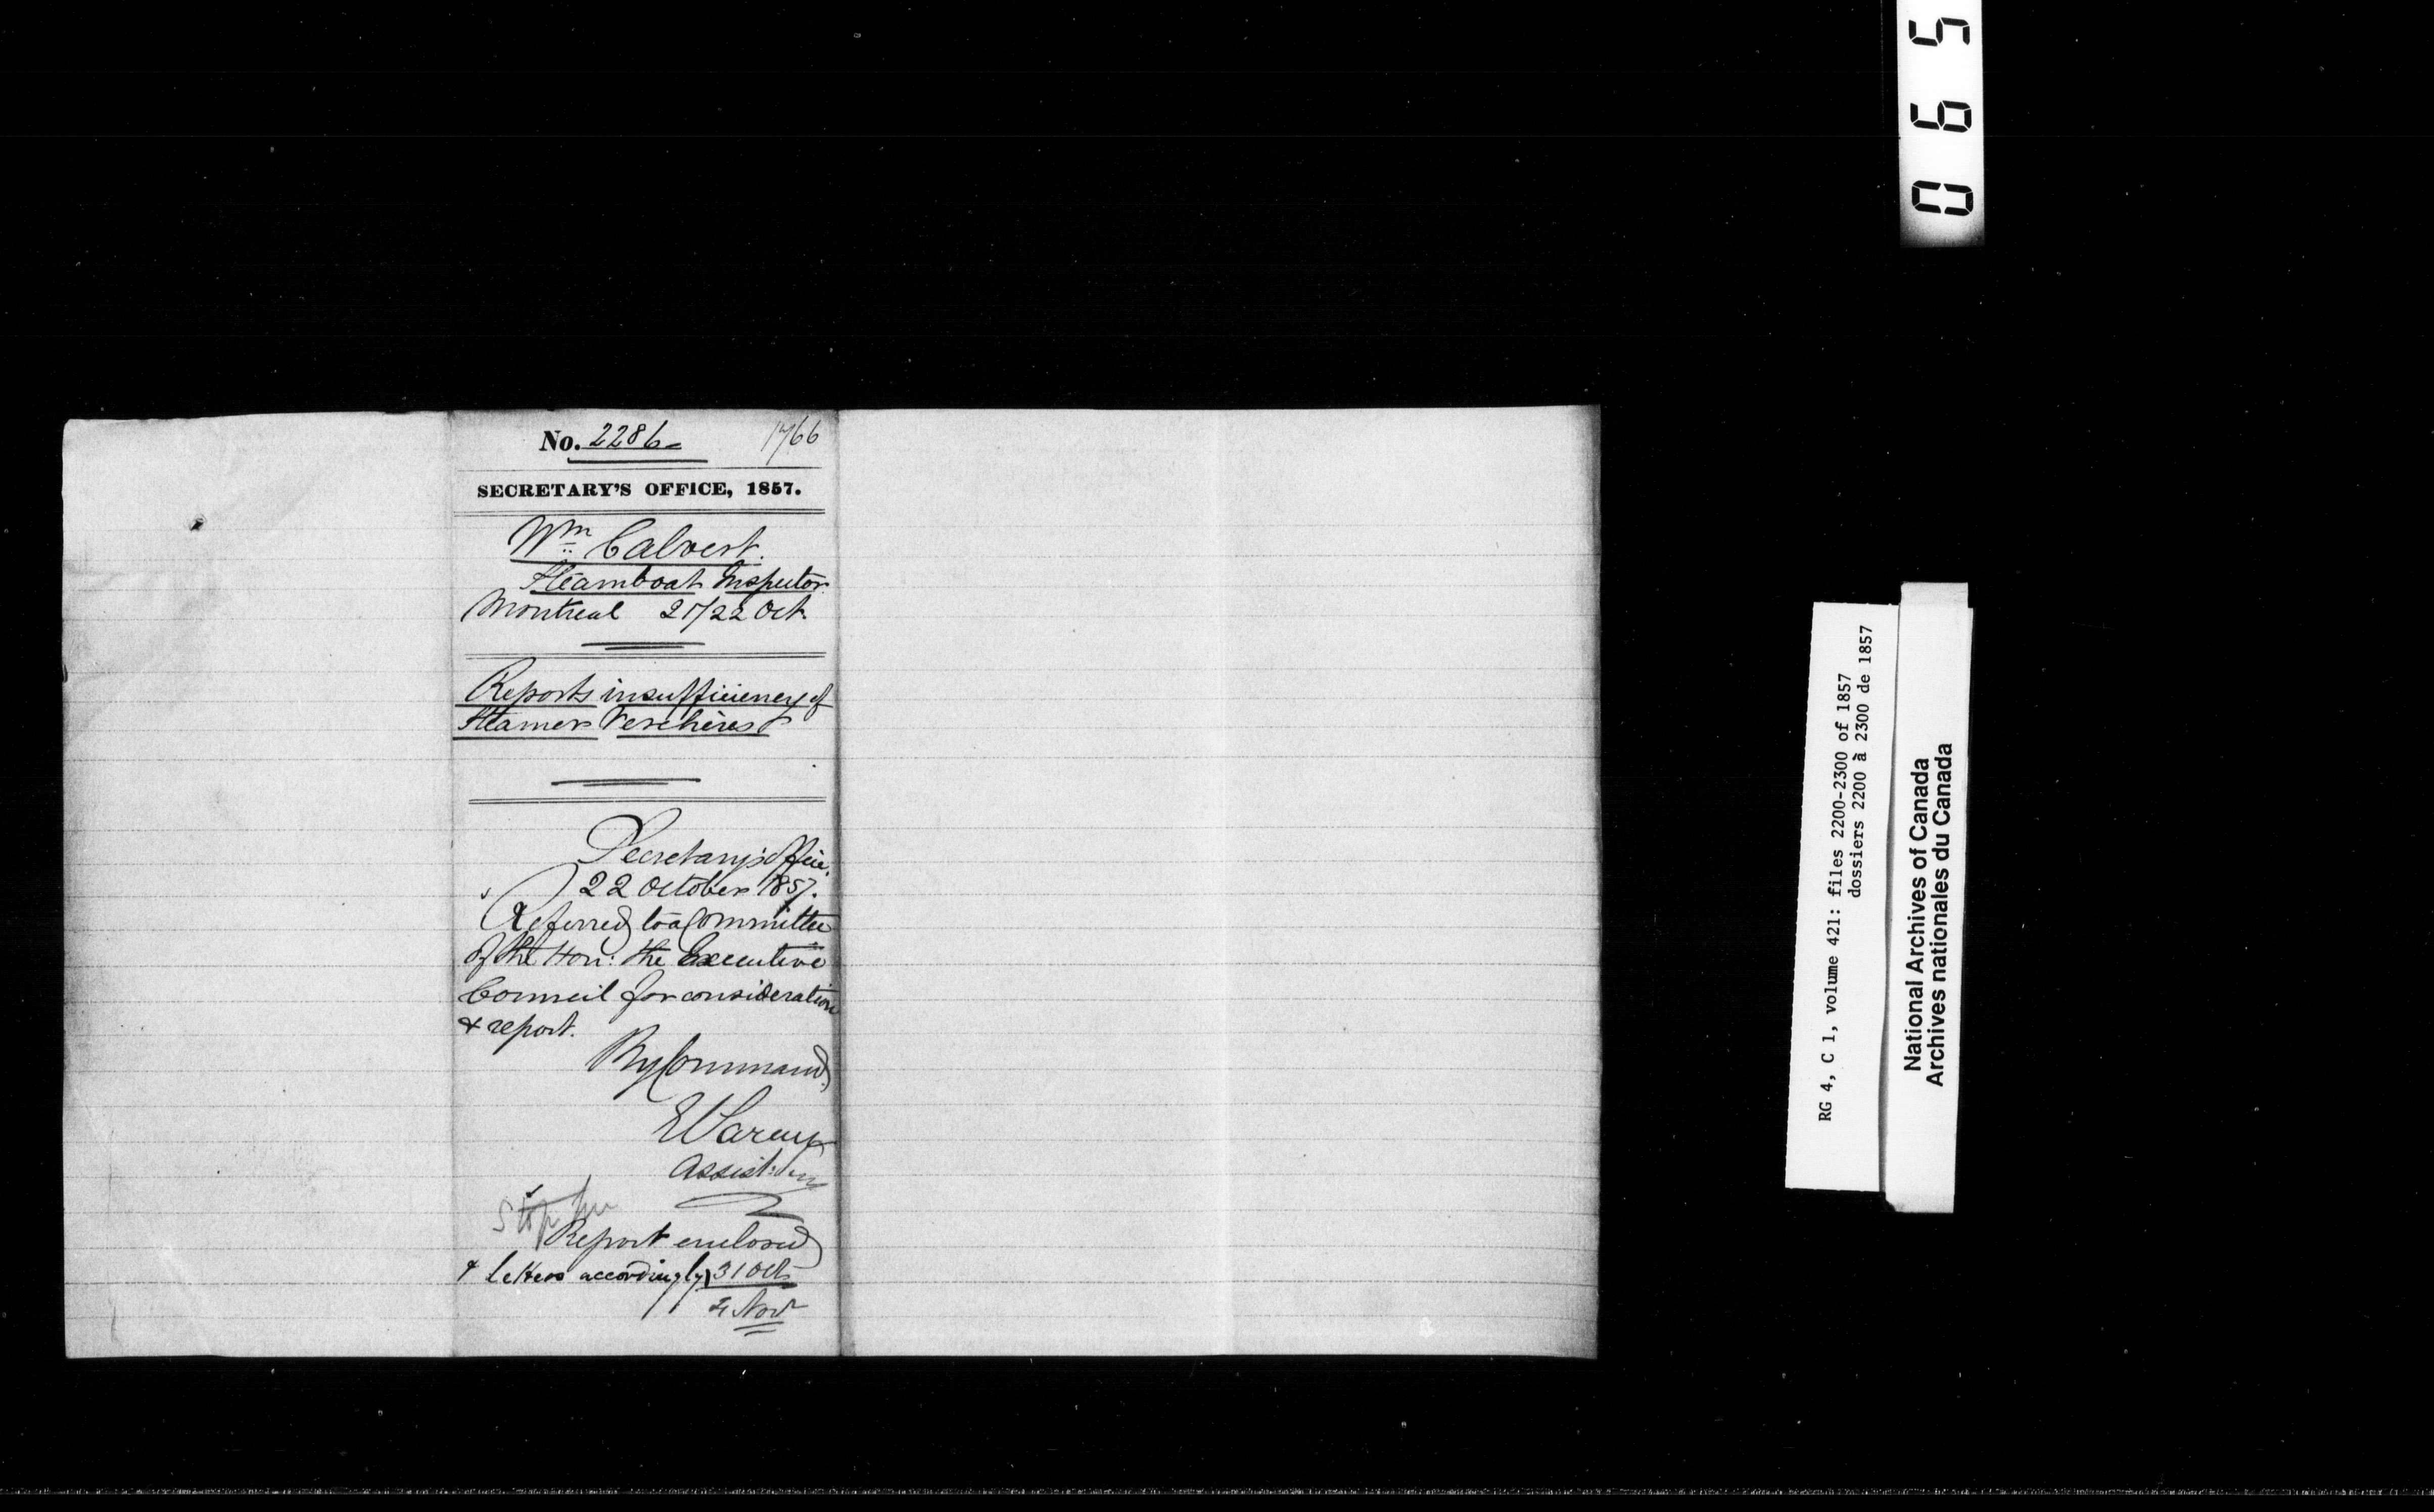 No. 2286 1766
SECRETARY'S OFFICE, 1857.
Wm Calvert.
Steamboat Inspector
Montreal 21/22 Oct.
Reports insufficiency of
Steamer Verchères
Secretary's Office,
22 October 1857.
Referred to a Committee
of the Hon: the Executive
Council for consideration
& report.
By Command
E Parent
Assist: Secy
Report enclosed
& letters accordingly 31 Oct
Nov
0665
RG 4, C 1, volume 421: files 2200-2300 of 1857
dossiers 2200 à 2300 de 1857
National Archives of Canada
Archives nationales du Canada